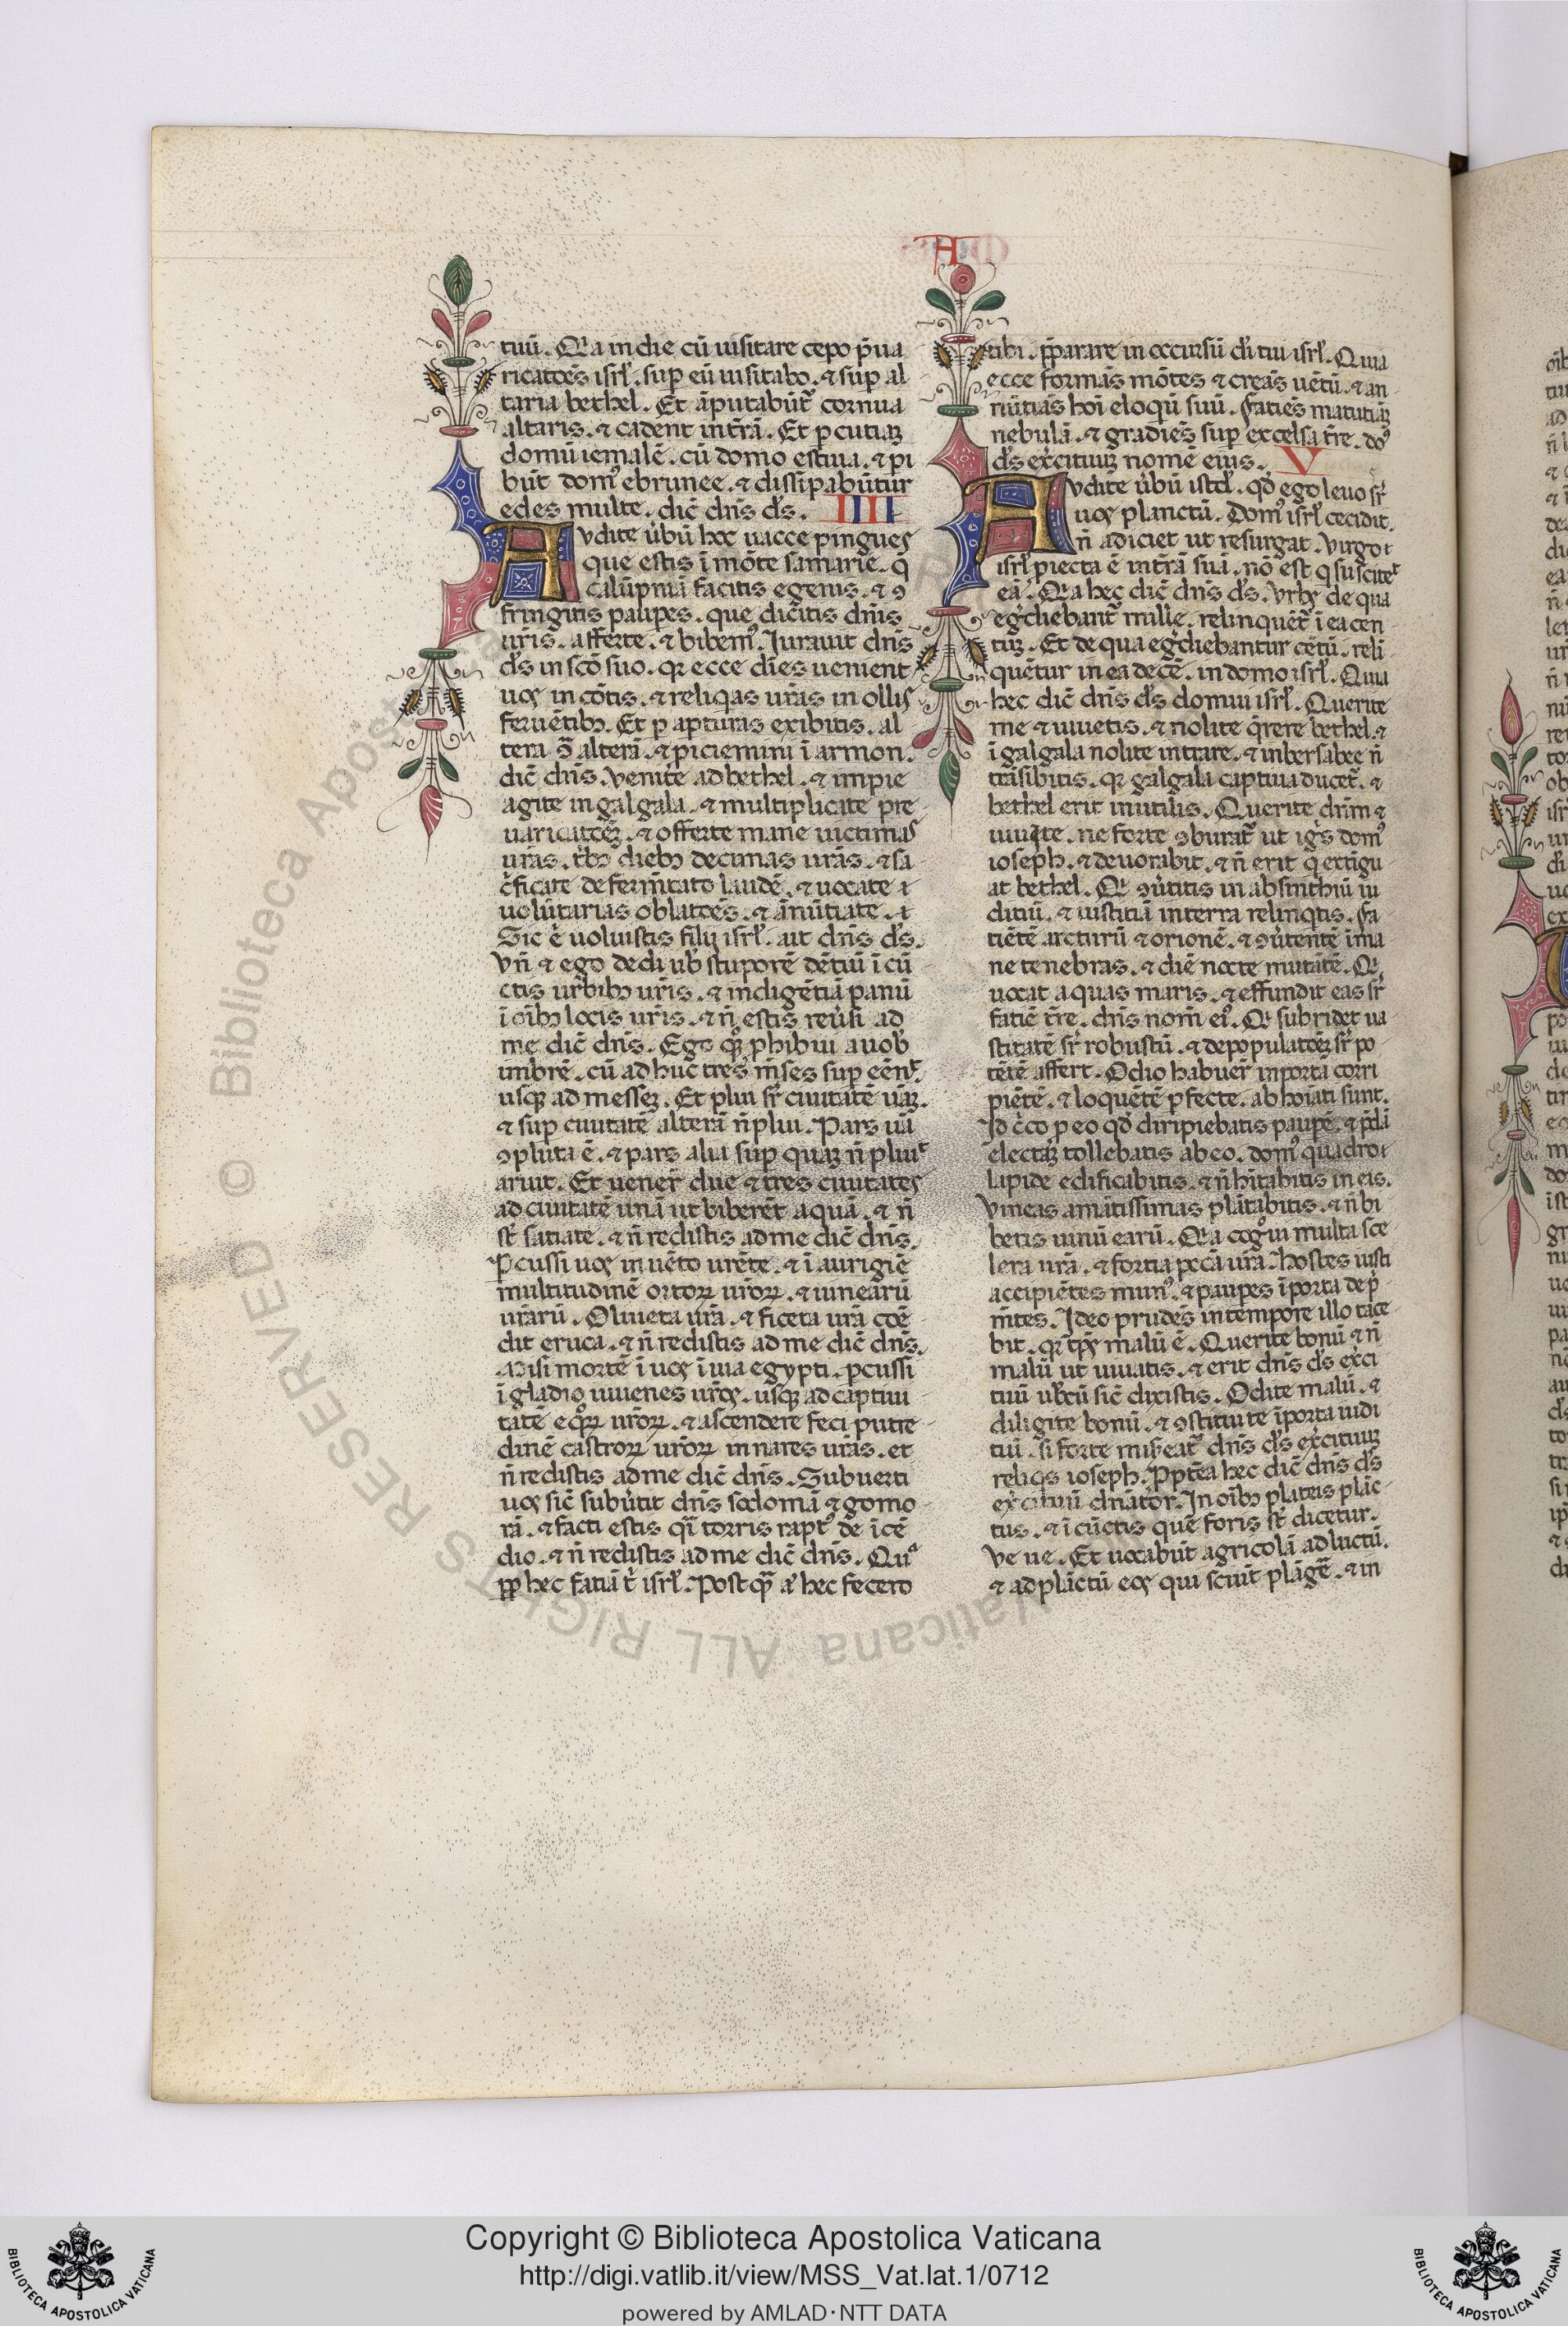 A
tuū. Q̄a in die cū uisitare cepo p̄ua
ricatōes isrl̄. sup eū uisitabo. ⁊ sup al
taria bethel. Et āputabūt᷑ cornua
altaris. ⁊ cadent in t̄rā. Et ꝑcutiaꝫ
domū iemalē. cū domo estiua. ⁊ ꝑi
būt domꝰ ebrunee. ⁊ dissipabūtur
edes multe. dic̄ dn̄s ds̄. IIII
Audite ūbū hoc uacce pingues
que estis ī mōte samarie. q̄
calūpniā facitis egenis. ⁊ ꝯ
fringitis pauꝑes. que dicitis dn̄is
ur̄is. afferte. ⁊ bibemꝰ. Iurauit dn̄s
ds̄ in scō suo. qꝛ ecce dies uenient
uos in cōtis. ⁊ reliqas ur̄as in ollis
feruētibꝰ. Et ꝑ apturas exibitis. al
tera ꝯ̄ alterā. ⁊ ꝓiciemini ī armon.
dic̄ dn̄s. Venite ad bethel. ⁊ impie
agite in galgala. ⁊ multiplicate pre
uaricatōeꝫ. ⁊ offerte mane uictimas
ur̄as. t̄bꝰ diebꝰ decimas ur̄as. ⁊ sa
c̄ficate de ferm̄tato laudē. ⁊ uocate
uolūtarias oblatōes. ⁊ ānūtiate.
Sic ē uoluistis filij isrl̄. ait dn̄s ds̄.
Vn̄ ⁊ ego dedi uob̄ stuporē dētiū ī cū
ctis urbibꝰ ur̄is. ⁊ indigētiā panū
ī oībꝰ locis ur̄is. ⁊ n̄ estis reūsi ad
me dic̄ dn̄s. Ego qꝫ ꝓhibui a uob̄
imbrē. cū adhuc tres m̄ses sup eēn᷑.
usqꝫ ad messeꝫ. Et plui sr̄ ciuitatē unā.
⁊ sup ciuitatē alterā n̄ plui. Pars unā
ꝯpluta ē. ⁊ pars alia sup quaꝫ n̄ plui
aruit. Et uener̄ due ⁊ tres ciuitates
ad ciuitatē unā ut biberēt aquā. ⁊ n̄
st̄ satiate. ⁊ n̄ redistis ad me dic̄ dn̄s.
Ꝑcussi uos in uēto urēte. ⁊ ī aurigie
multitudinē ortoꝝ ur̄oꝝ. ⁊ uinearū
ur̄arū. Oliueta ur̄a. ⁊ ficeta ur̄a cōe
dit eruca. ⁊ n̄ redistis ad me dic̄ dn̄s.
Misi mortē ī uos ī uia egypti. ꝑcussi
ī gladio iuuenes ur̄os. usqꝫ ad captiui
tatē equoꝝ ur̄oꝝ. ⁊ ascendere feci putre
dinē castroꝝ ur̄oꝝ in nares ur̄as. et
n̄ redistis ad me dic̄ dn̄s. Subuerti
uos sic̄ subūtit dn̄s sodomā ⁊ gomo
rā. ⁊ facti estis qī torris raptꝰ de īcē
dio. ⁊ n̄ redistis ad me dic̄ dn̄s. Quaꝓ
ꝓꝑ hec faciā t̄ isrl̄. Postqꝫ aū hec fecero
tibi. p̄parare in occursū di tui isrl̄. Quia
ecce formās mōtes ⁊ creās uētū. ⁊ an
nūtiās hoī eloqū suū. Faciēs matutinaꝫ
nebulā. ⁊ gradiēs sup excelsa t̄re. dn̄s
ds̄ ex̄cituuꝫ nomē eius. V
Audite ūbū istd̄. qd̄ ego leuo sr̄
uos planctū. Domꝰ isrl̄ cecidit.
n̄ adiciet ut resurgat. Virgo
isrl̄ ꝓiecta ē in t̄rā suā. nō est q suscitet
eā. Q̄a hec dic̄ dn̄s ds̄. Vrbs de qua
eḡdiebant᷑ mille. relinquēt᷑ ī ea cen
tuꝫ. Et de qua eḡdiebantur cētū. reli
quētur in ea decē. in domo isrl̄. Quia
hec dic̄ dn̄s ds̄ domui isrl̄. Querite
me ⁊ uiuetis. ⁊ nolite q̄rere bethel. ⁊
ī galgala nolite intrare. ⁊ in bersabee n̄
trāsibitis. qꝛ galgala captiua ducet᷑. ⁊
bethel erit inutilis. Querite dn̄m ⁊
uiuite. ne forte ꝯburat᷑ ut igs domꝰ
ioseph. ⁊ deuorabit. ⁊ n̄ erit q extīgu
at bethel. Q̄ ꝯūtitis in absinthiū iu
ditiū. ⁊ iustitiā in terra relinqtis. Fa
tiētē arcturū ⁊ orionē. ⁊ ꝯūtentē ī ma
ne tenebras. ⁊ diē nocte mutātē. Q̄
uocat aquas maris. ⁊ effundit eas sr̄
fatiē t̄re. dn̄s nom̄ eiꝰ. Q̄ subridet ua
stitatē sr̄ robustū. ⁊ depopulatōeꝫ sr̄ po
tētē affert. Odio habuer̄ in porta corri
piētē. ⁊ loquētē ꝑfecte. abhoīati sunt.
Idc̄co ꝑ eo qd̄ diripiebatis pauꝑē. ⁊ p̄dā
electaꝫ tollebatis ab eo. domꝰ quadro
lapide edificabitis. ⁊ n̄ h̄itabitis in eis.
Vineas amātissimas plātabitis. ⁊ n̄ bi
betis uinū earū. Q̄a cogͦui multa sce
lera ur̄a. ⁊ fortia pc̄cā ur̄a. hostes iusti
accipiētes munꝰ. ⁊ pauꝑes ī porta dep̄
m̄tes. Ideo prudēs in tempore illo tace
bit. qꝛ tp̄s malū ē. Querite bonū ⁊ n̄
malū ut uiuatis. ⁊ erit dn̄s ds̄ ex̄ci
tuū ubcū sic̄ dixistis. Odite malū. ⁊
diligite bonū. ⁊ ꝯstituite ī porta iudi
tiū. si forte mis̄eat᷑ dn̄s ds̄ ex̄cituuꝫ
reliqis ioseph. Ꝓpt̄ea hec dic̄ dn̄s ds̄
ex̄cituū dnātor. In oībꝰ plateis plāc
tus. ⁊ ī cūctis que foris st̄ dicetur.
ve ue. Et uocabūt agricolā ad luctū.
⁊ ad plāctū eos qui sciūt plāge᷑. ⁊ in
© Biblioteca Apostolica Vaticana ALL RIGHTS RESERVED
Copyright © Biblioteca Apostolica Vaticana
http://digi.vatlib.it/view/MSS_Vat.lat.1/0712
powered by AMLAD·NTT DATA
BIBLIOTECA APOSTOLICA VATICANA
BIBLIOTECA APOSTOLICA VATICANA